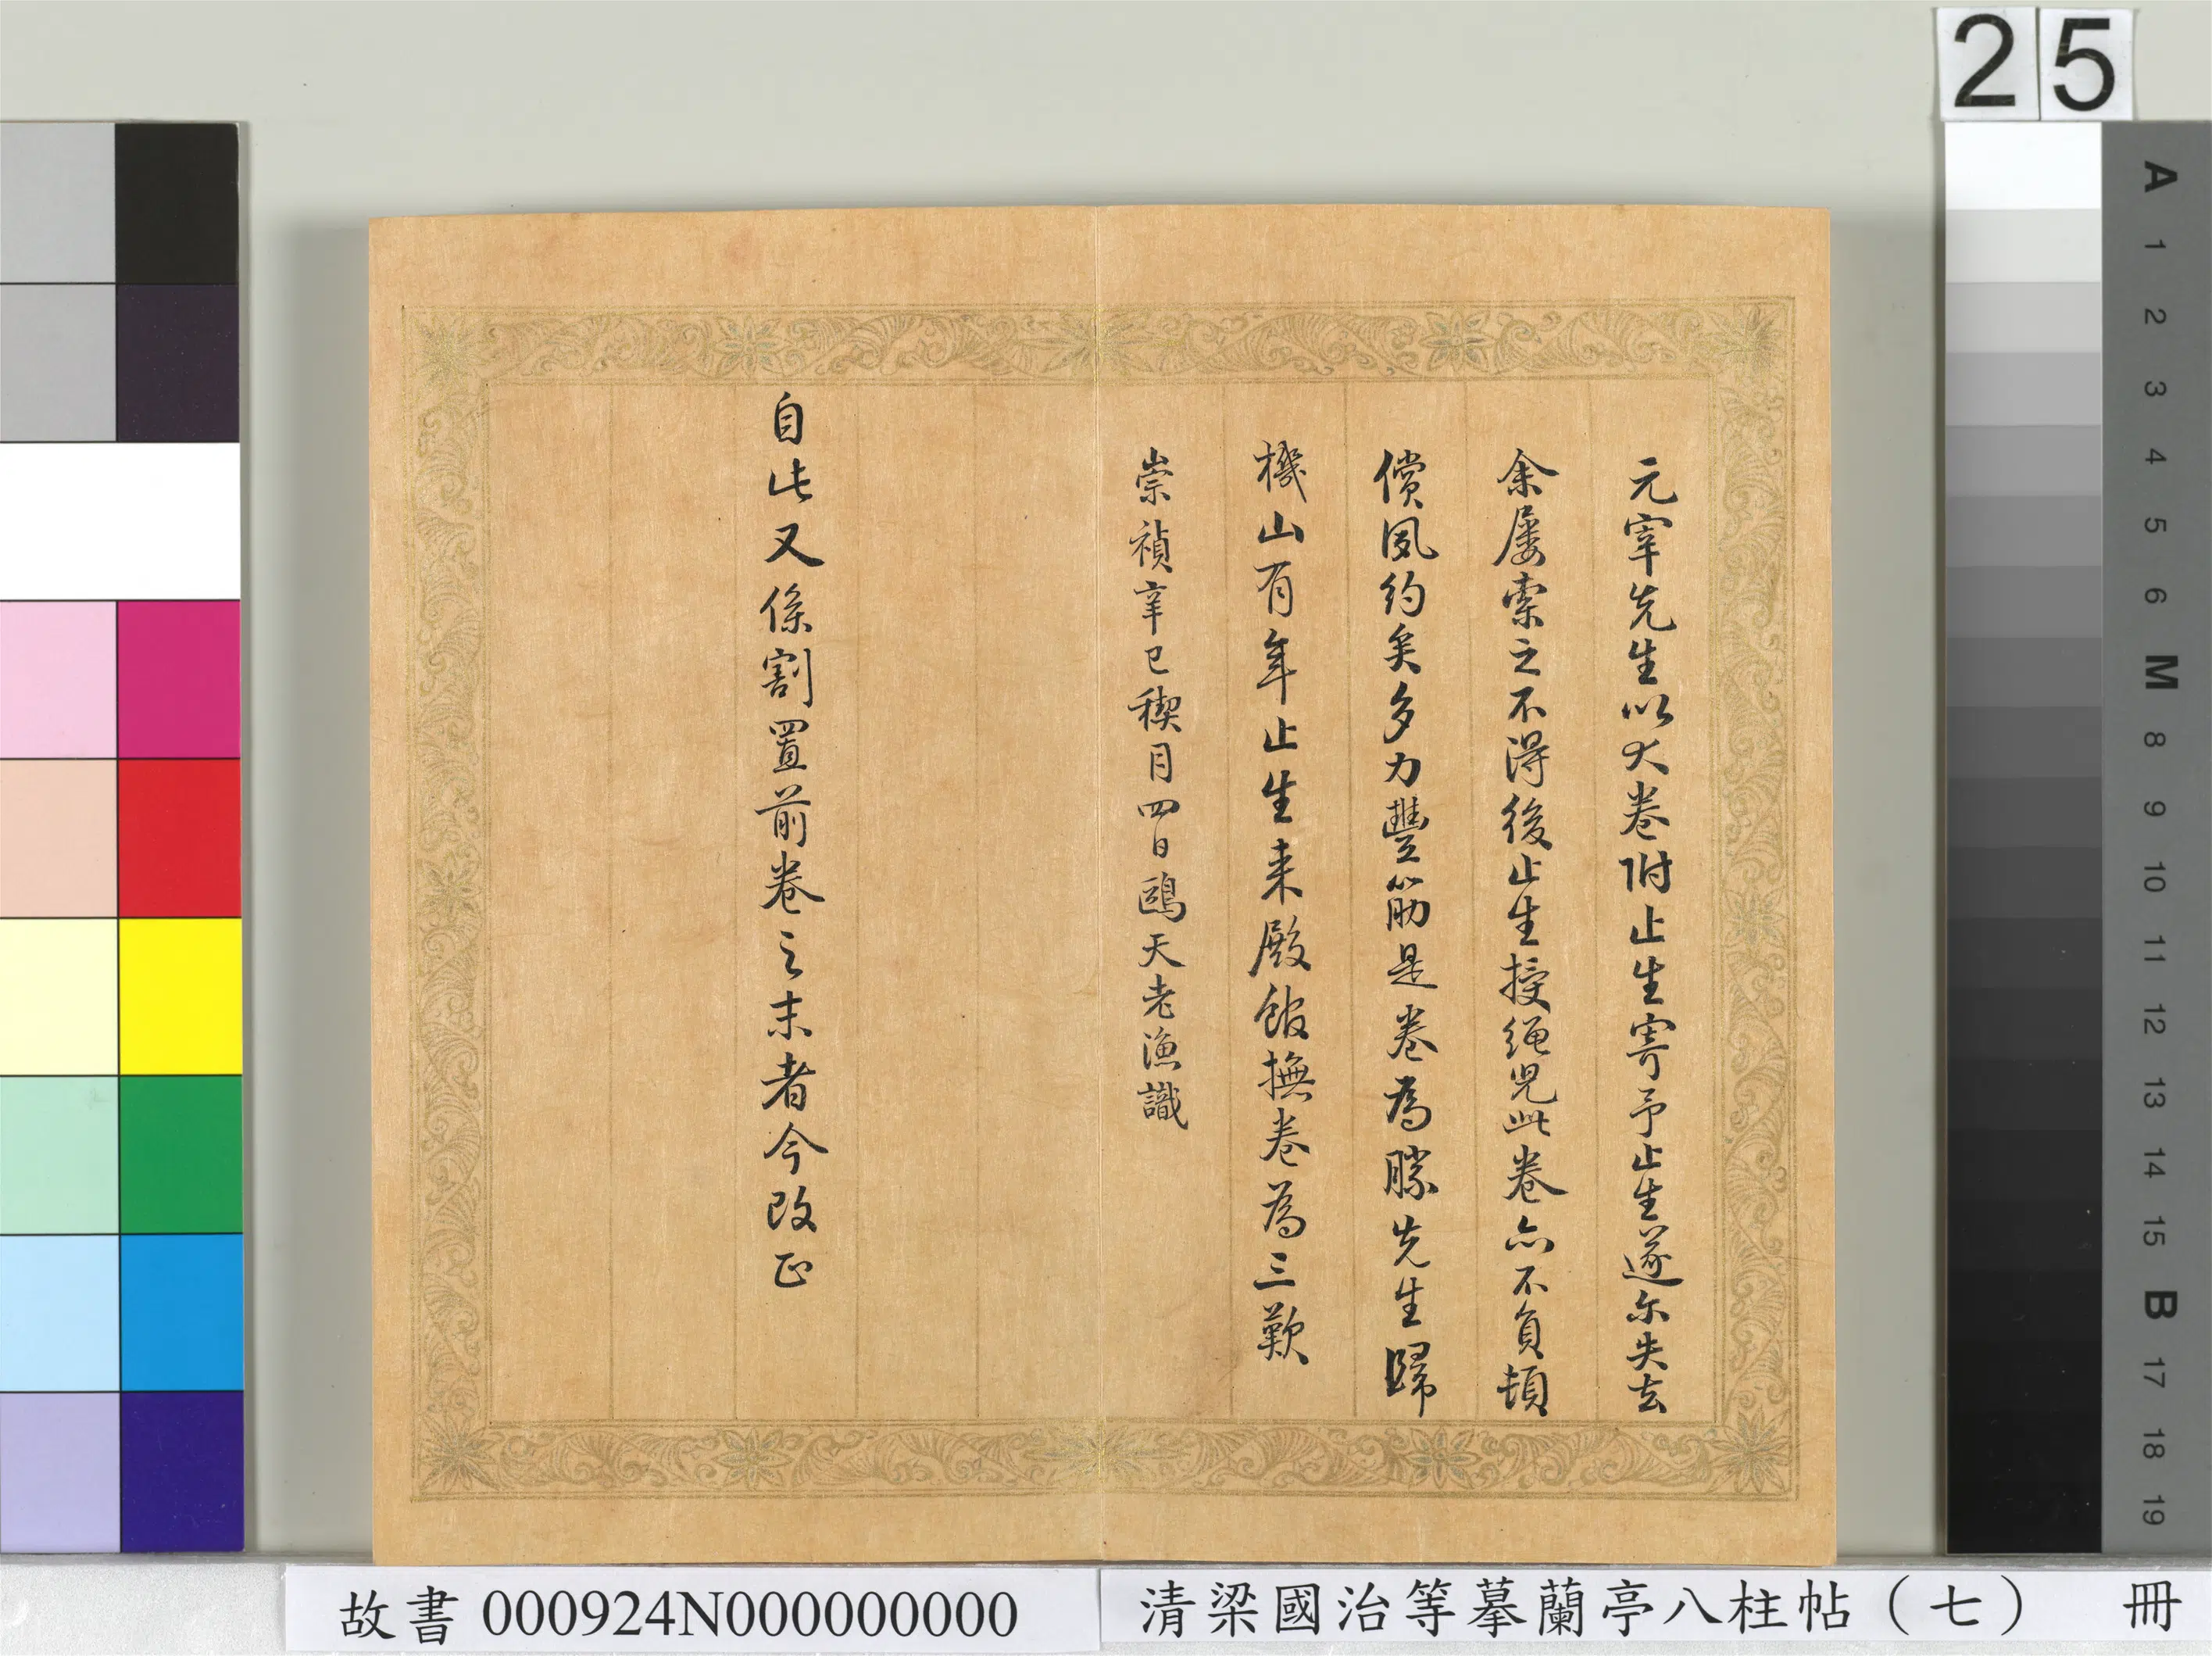 25
元宰先生以大卷附止生寄予止生遂尓失去
余屢索之不得後止生授绳兒此卷亦不負頓
償夙約矣多力豐筋是卷為勝先生歸
機山有年止生来殿館撫卷為三歎
崇禎辛巳禊月四日鷗天老漁識
自此又係割置前卷之末者今改正
A
1
2
3
4
5
6
M
8
9
10
11
12
13
14
15
B
17
18
19
故書 000924N000000000
清梁國治等摹蘭亭八柱帖（七） 冊